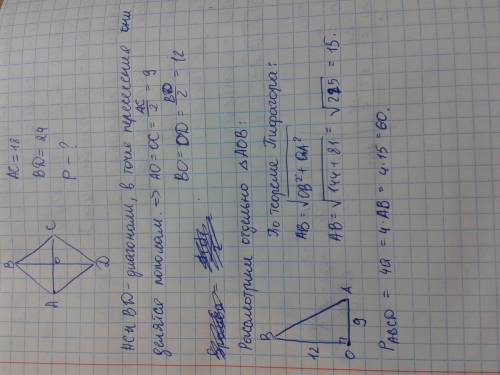 B
A
O
C
D
AC = 18
BD = 24
P - ?
AC и BD - диагонали, в точке пересечения они
делятся пополам. => AO = OC = AC/2 = 9
BO = OD = BD/2 = 12
Рассмотрим отдельно △AOB:
B
12
O
9
A
По теореме Пифагора:
AB = √OB² + OA²
AB = √144 + 81 = √225 = 15.
P ABCD = 4a = 4·AB = 4·15 = 60.